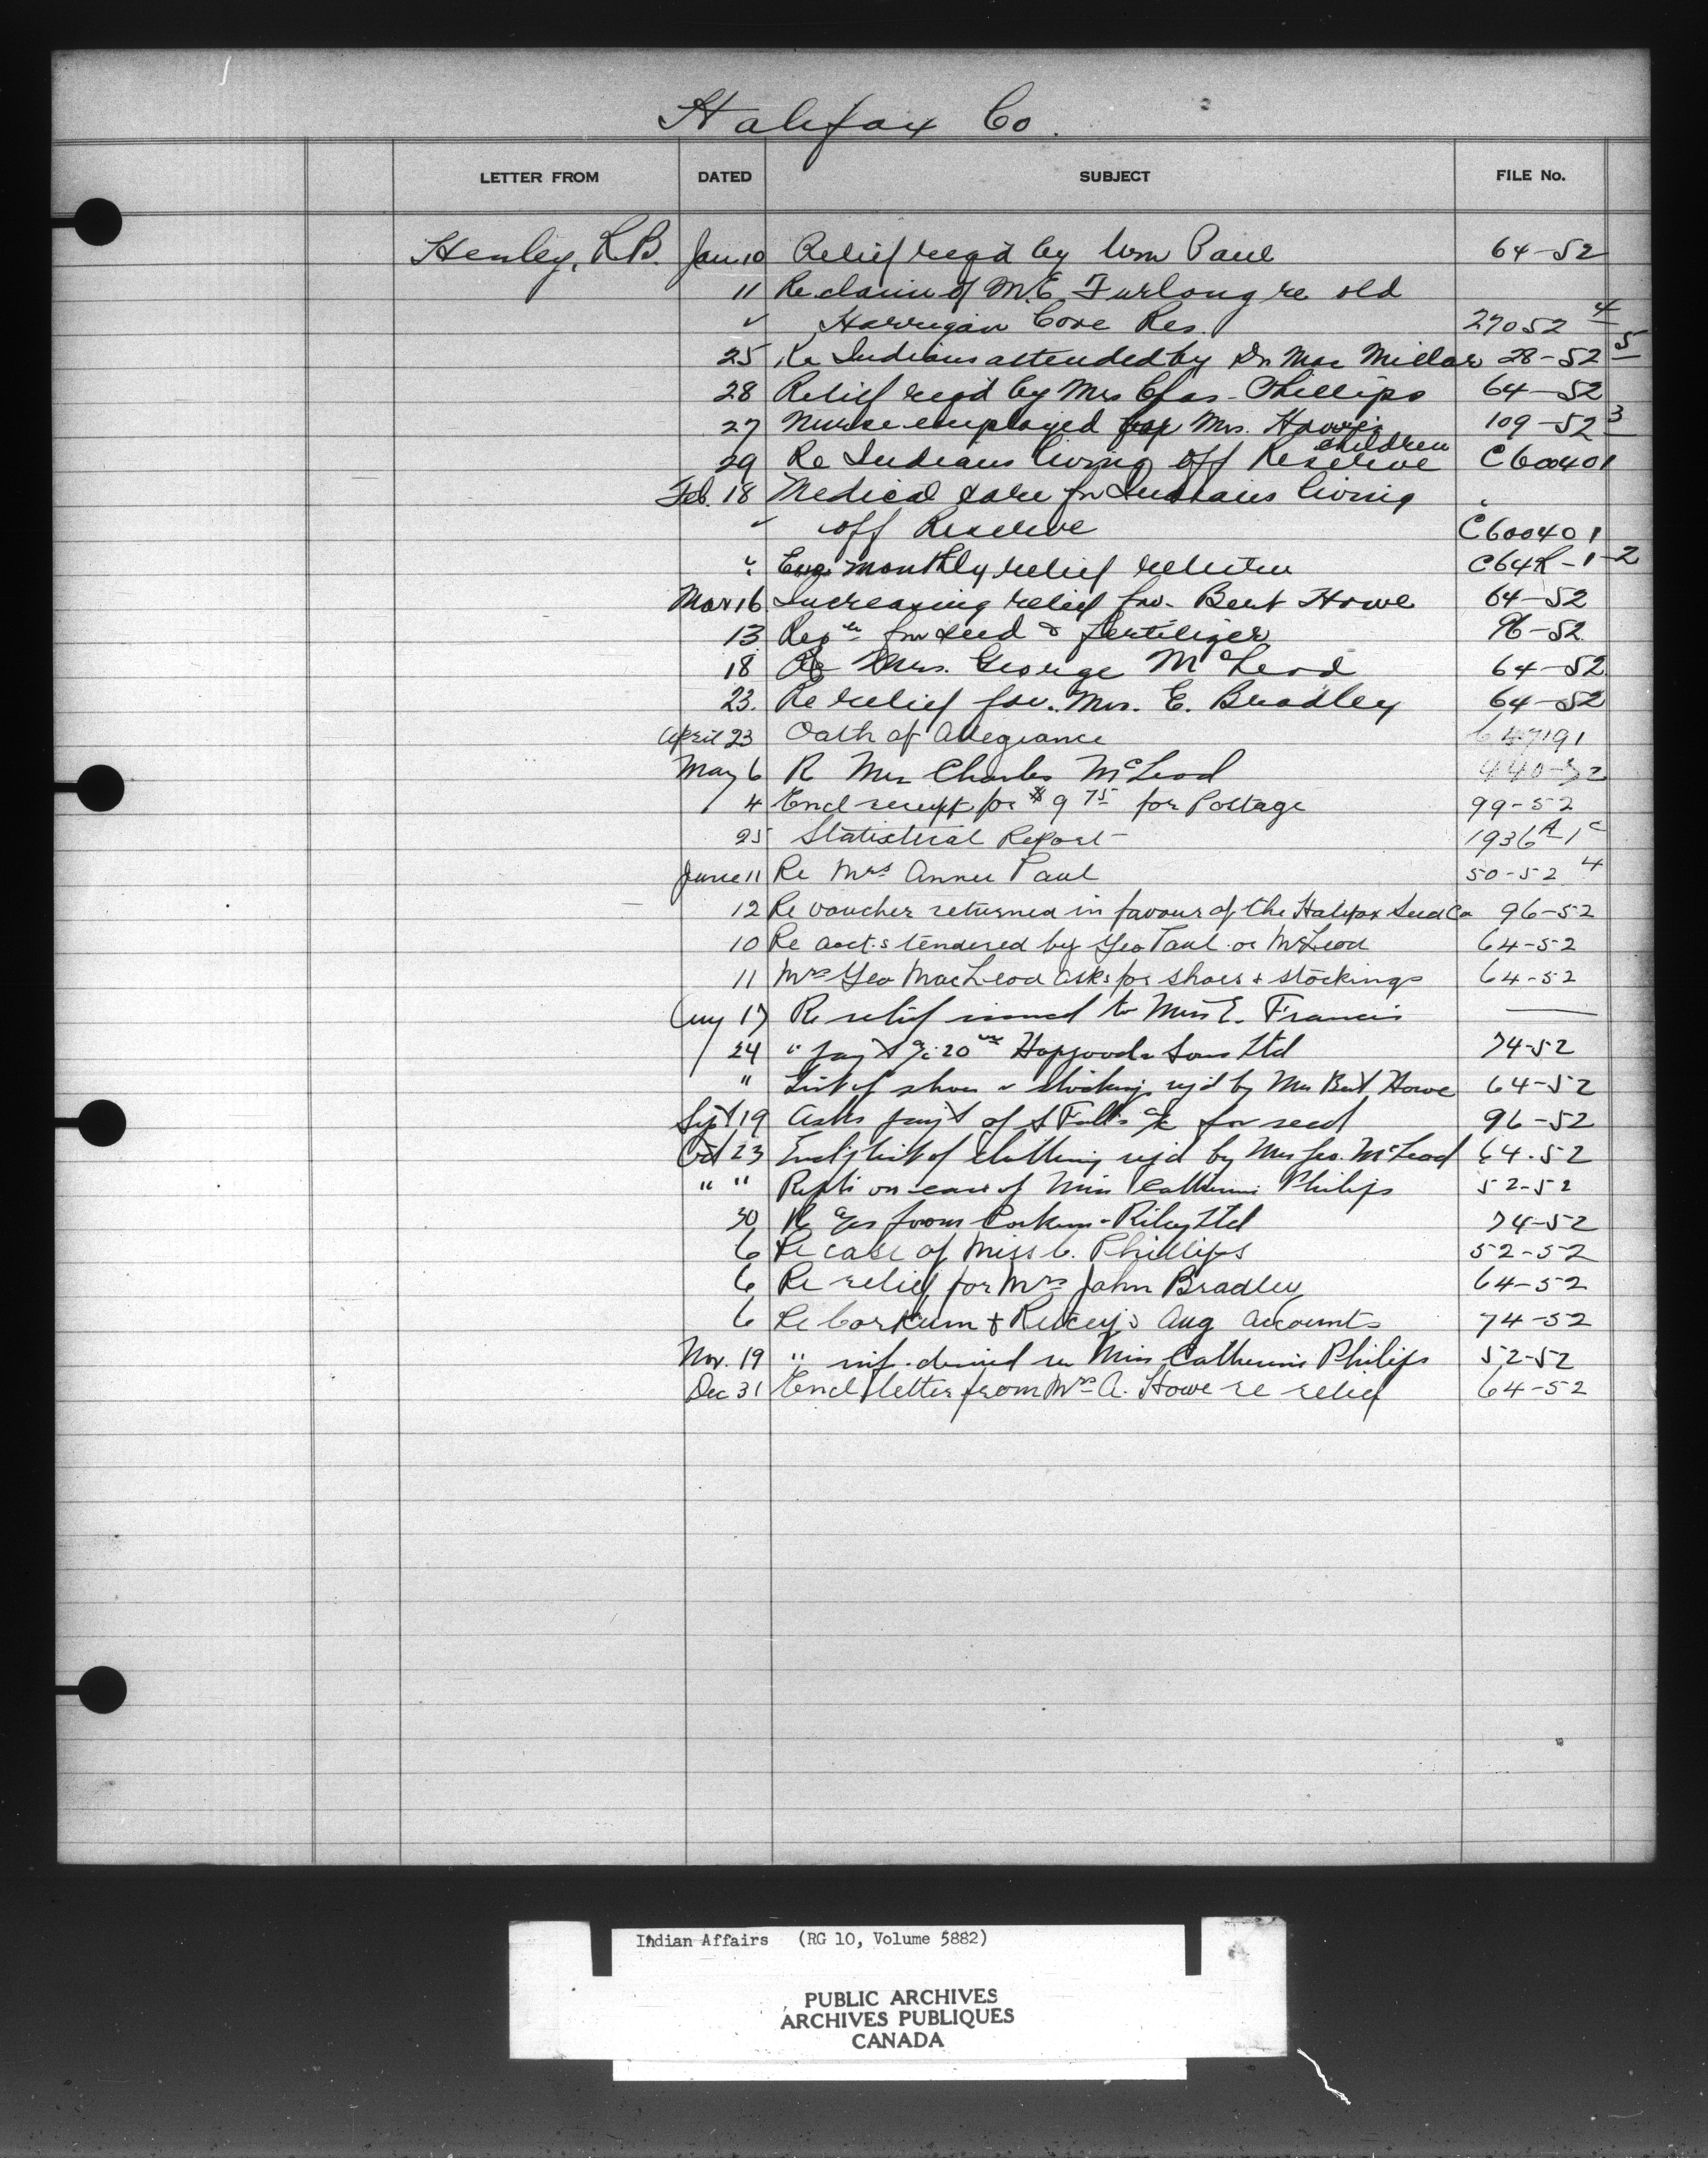 Halifax Co.
LETTER FROM DATED SUBJECT FILE No.
Henley, R.B. Jan 10 Relief reqd by Wm Paul 64-52
11 Re claim of M.E. Furlong re old
" Harrigan Cove Res. 27052-4
25 Re Indians attended by Dr. Mac Millar 28-52-5
28 Relief reqd by Mrs Chas. Phillips 64-52
27 Nurse employed for Mrs. Howe's 109-52-3
children
29 Re Indians living off Reserve C600401
Feb. 18 Medical care for Indians living
" off Reserve C600401
" monthly relief C64R-1-2
Mar 16 Increasing relief for Bert Howe 64-52
13 Reqn for seed & fertilizer 96-52
18 Re Mrs. George McLeod 64-52
23. Re relief for Mrs. E. Bradley 64-52
April 23 Oath of Allegiance 647191
May 6 R Mrs Charles McLeod 440-52
4 Encl receipt for $9 75 for Postage 99-52
25 Statistical Report 1936A-1c
June 11 Re Mrs Annie Paul 50-52-4
12 Re voucher returned in favour of the Halifax Seed Co 96-52
10 Re acct.s tendered by Geo Paul or McLeod 64-52
11 Mrs Geo MacLeod asks for shoes & stockings 64-52
Aug 17 Re relief issued to Mrs E. Francis —
24 " pay't a/c 20 & Sons Ltd 74-52
" List of shoes & stockings rq'd by Mrs Bert Howe 64-52
Sept 19 Asks pay't of S a/c for seed 96-52
Oct 23 Encl'g list of clothing rq'd by Mrs Geo. McLeod 64-52
" " on case of Miss Catherine Philips 52-52
30 R a/cs from Corkum-Ritcey Ltd 74-52
6 Re case of Miss C. Phillips 52-52
6 Re relief for Mrs John Bradley 64-52
6 Re Corkum & Ritcey's Aug accounts 74-52
Nov. 19 " inf. desired re Miss Catherine Philips 52-52
Dec 31 Encl letter from Mrs A. Howe re relief 64-52
Indian Affairs (RG 10, Volume 5882)
PUBLIC ARCHIVES
ARCHIVES PUBLIQUES
CANADA